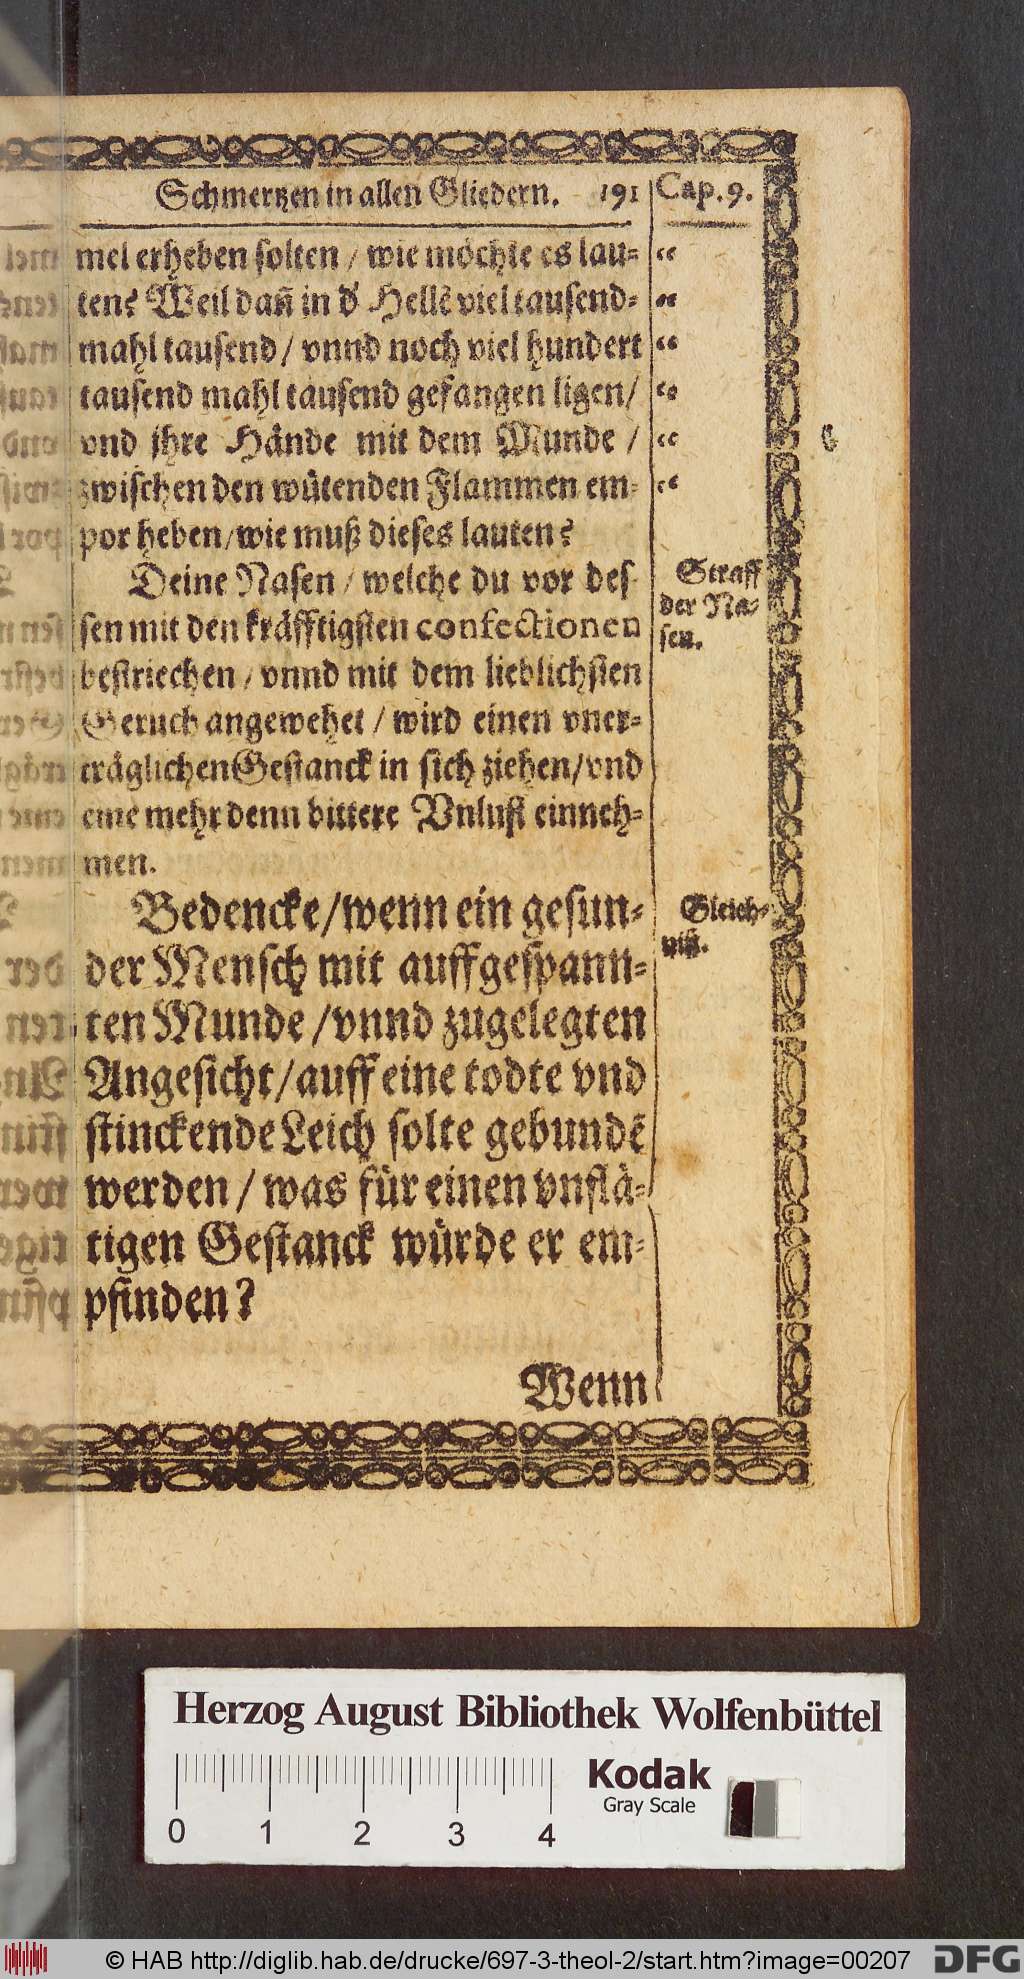 Schmertzen in allen Gliedern. 191 Cap. 9.
mel erheben solten / wie möchte es lau- “
ten? Weil dañ in d' Hellē viel tausend- “
mahl tausend / vnnd noch viel hundert “
tausend mahl tausend gefangen ligen/ “
vnd jhre Hände mit dem Munde / “
zwischen den wütenden Flammen em- “
por heben/wie muß dieses lauten?
Deine Nasen / welche du vor des-
sen mit den kräfftigsten confectionen
bestriechen / vnnd mit dem lieblichsten
Geruch angewehet / wird einen vner-
träglichen Gestanck in sich ziehen/vnd
eine mehr denn bittere Vnlust einneh-
men.
Straff
der Na-
sen.
Bedencke/wenn ein gesun-
der Mensch mit auffgespann-
ten Munde /vnnd zugelegten
Angesicht/auff eine todte vnd
stinckende Leich solte gebundē
werden / was für einen vnflä-
tigen Gestanck würde er em-
pfinden?
Gleich-
niß.
Wenn
Herzog August Bibliothek Wolfenbüttel
Kodak
Gray Scale
0 1 2 3 4
© HAB http://diglib.hab.de/drucke/697-3-theol-2/start.htm?image=00207
DFG